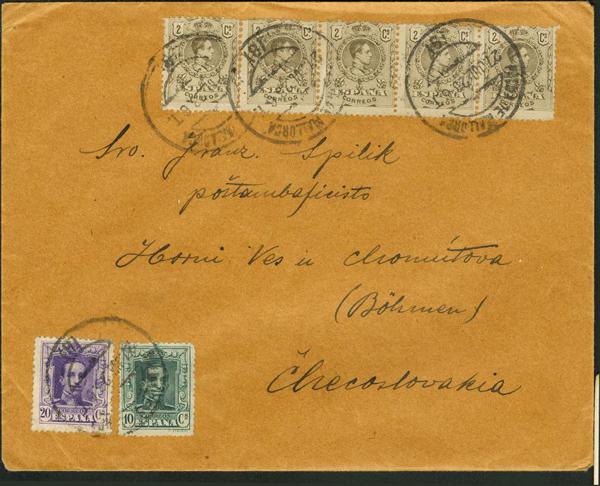 2 Cs 2 Cs 2 Cs 2 Cs 2 Cs
ESPAÑA ESPAÑA ESPAÑA ESPAÑA ESPAÑA
CORREOS CORREOS CORREOS CORREOS CORREOS
MALLORCA
Sro. Franz. Spilik
poštambaficisto
Horni Ves u Chomútova
(Böhmen)
Čhecoslovakia
20 Cs 10 Cs
ESPAÑA ESPAÑA